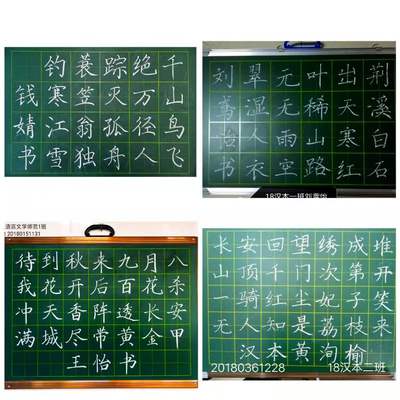 千山鸟飞
绝万径人
踪灭孤舟
蓑笠翁独
钓寒江雪
钱婧书
荆溪白石
出天寒红
叶稀山路
元无雨空
翠湿人衣
刘怡书
18汉本一班刘怡
语言文学师范1班
20180151131
待到秋来九月八
我花开后百花杀
冲天香阵透长安
满城尽带黄金甲
王怡书
长安回望绣成堆
山顶千门次第开
一骑红尘妃子笑
无人知是荔枝来
汉本黄洵榆
20180361228
18汉本二班